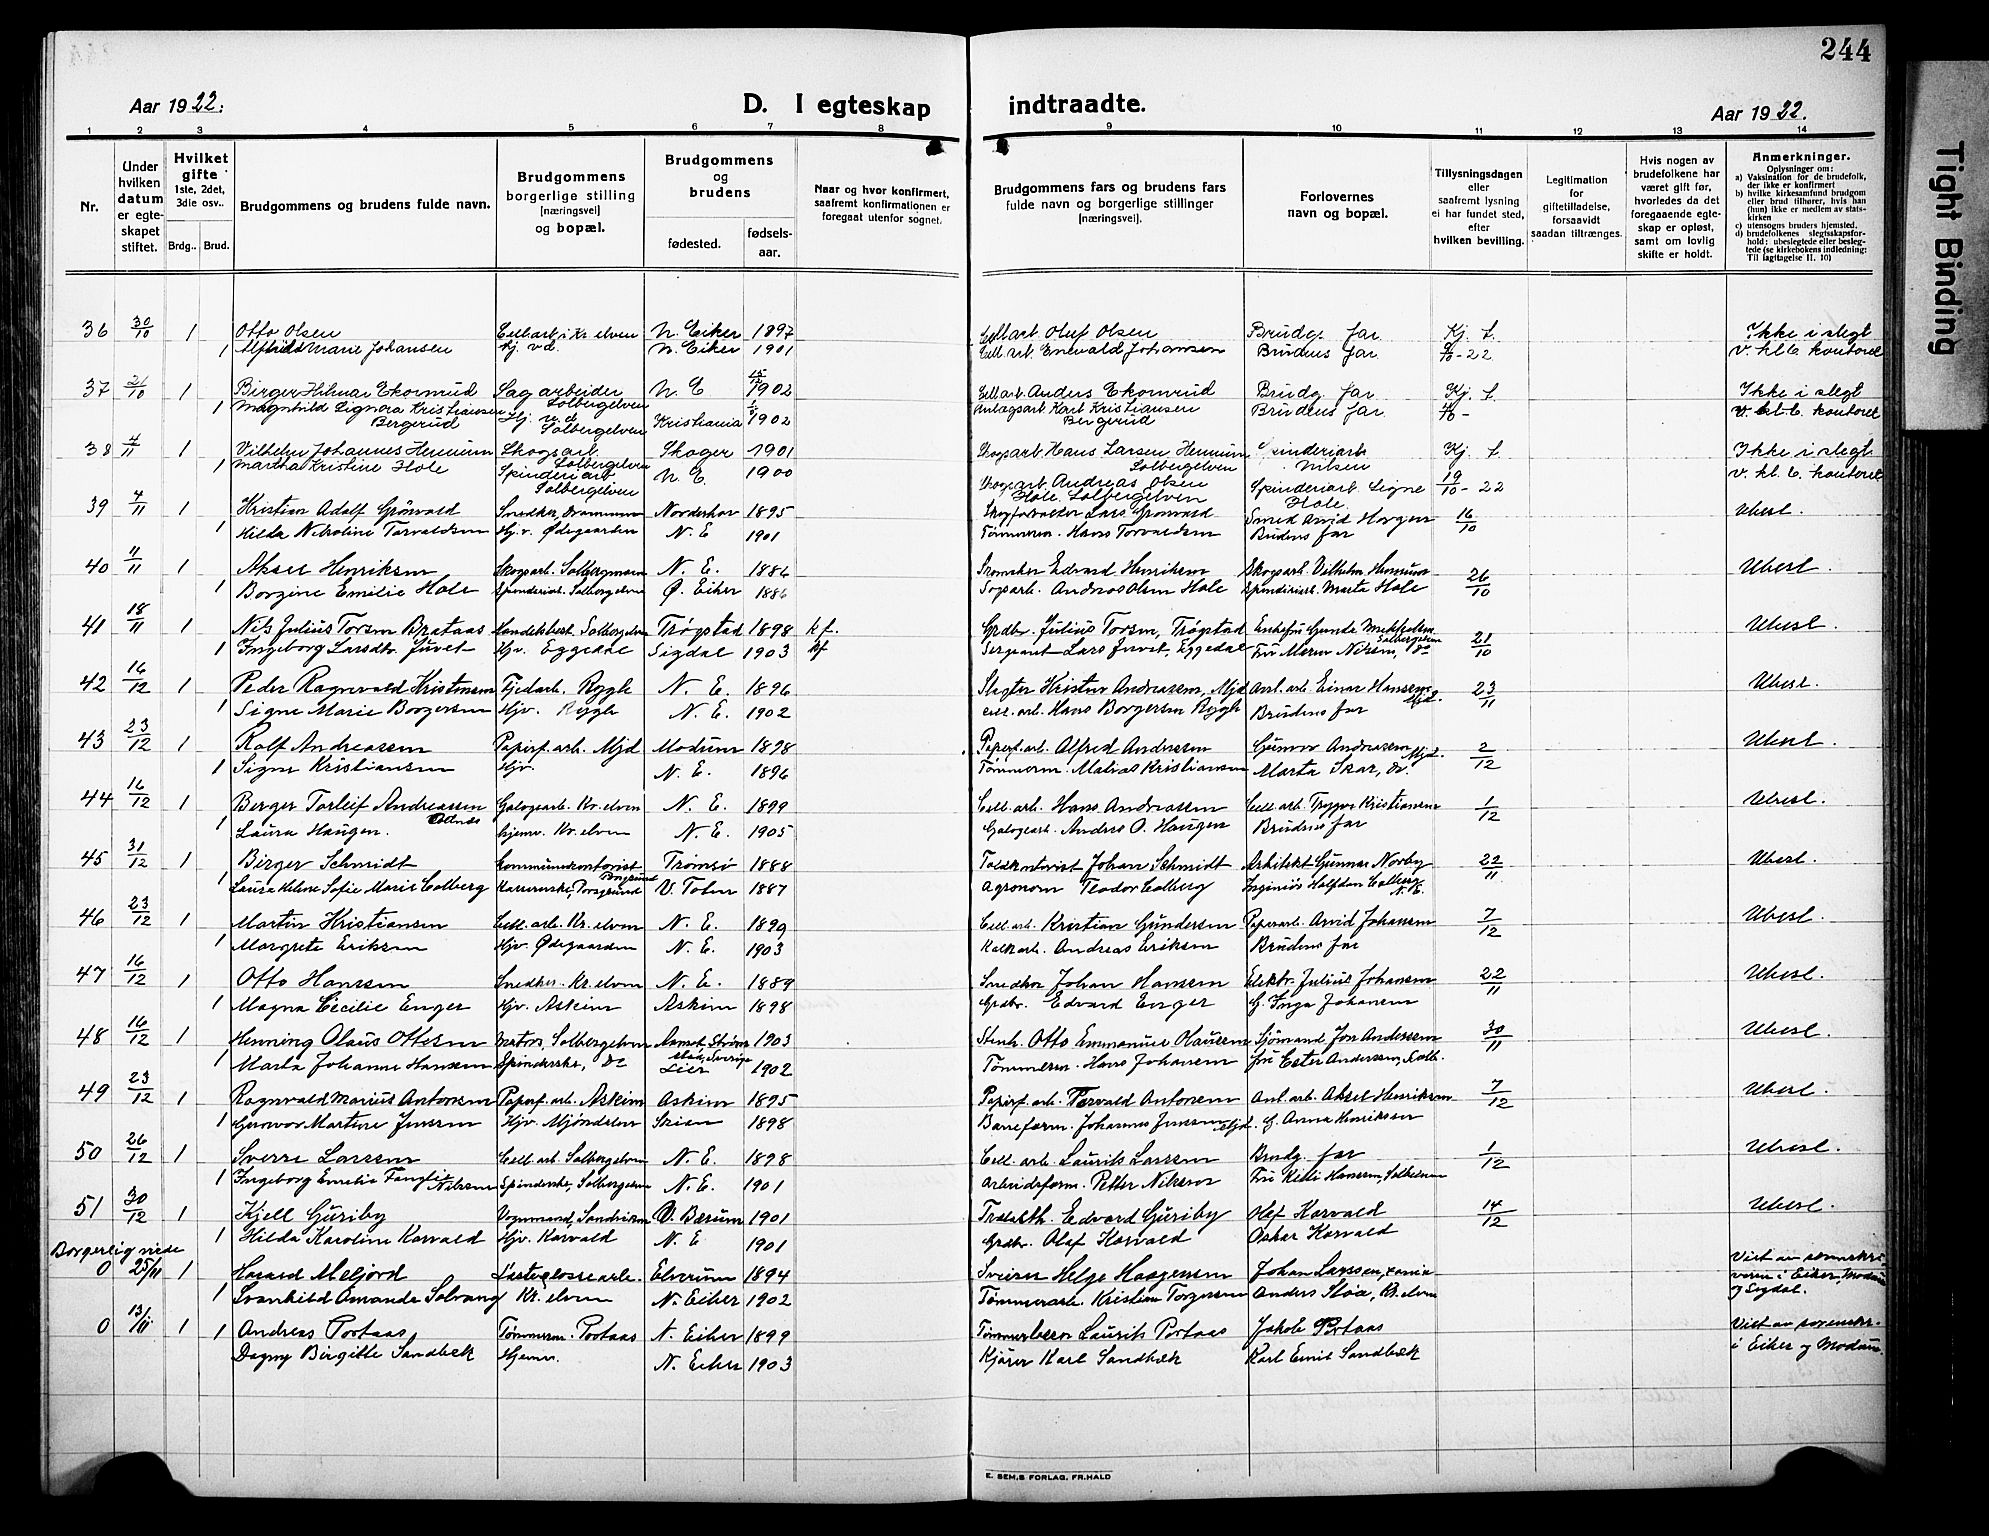 244
Aar 1922.
D. I egteskap
indtraadte.
Aar 1922.
1 2 3 4 5 6 7 8 9 10 11 12 13 14
Nr.
Under hvilken datum er egte-skapet stiftet.
Hvilket gifte 1ste, 2det, 3die osv..
Brdg.. Brud.
Brudgommens og brudens fulde navn.
Brudgommens borgerlige stilling (næringsvei) og bopæl.
Brudgommens og brudens
fødested.
fødsels-aar.
Naar og hvor konfirmert, saafremt konfirmationen er foregaat utenfor sognet.
Brudgommens fars og brudens fars fulde navn og borgerlige stillinger (næringsvei).
Forlovernes navn og bopæl.
Tillysningsdagen eller saafremt lysning ei har fundet sted, efter hvilken bevilling.
Legitimation for giftetilladelse, forsaavidt saadan tiltrænges.
Hvis nogen av brudefolkene har været gift før, hvorledes da det foregaaende egte-skap er opløst, samt om lovlig skifte er holdt.
Anmerkninger.
Oplysninger om:
a) Vaksination for de brudefolk, der ikke er konfirmert
b) hvilke kirkesamfund brudgom eller brud tilhører, hvis han (hun) ikke er medlem av stats-kirken
c) utensogns bruders hjemsted.
d) brudefolkenes slegtsskapsfor-hold: ubeslegtede eller besleg-tede (se kirkebokens indledning: Til Iagttagelse II. 10)
36 30/10 1 Otto Olsen Cell.arb. i Kr. elven N. Eiker 1897 Cell.arb. Oluf Olsen Brudg. far Kj. f. Ikke i slegt
1 Marie Johansen Hj. v.d. N. Eiker 1901 Cell. arb. Enevald Johansen Brudens far -22 v. kl. 6 kontoret
37 21/10 1 Birger Hilmar Ekornrud Sagarbeider N. E 1902 Cell.arb. Anders Ekornrud Brudg. far Kj. f. Ikke i slegt
1 Magnhild Signora Kristiansen Bergerud Hj. v.d. Solbergelven Kristiania 1902 Karl Kristiansen Bergerud Brudens far v. kl. 6. kontoret
38 4/11 1 Vilhelm Johannes Hemnum Skogsarb. Solbergelven Skoger 1901 Skogsarb. Hans Larsen Hemnum Solbergelven Spinderiarb. Nilsen Kj. f. Ikke i slegt
1 Martha Kristine Hole Spinderiarb. Solbergelven N. E. 1900 Skogsarb. Andreas Olsen Hole. Solbergelven Spinderiarb. Signe Hole 19/10 - 22 v. kl. 6. kontoret
39 4/11 1 Kristian Adolf Grønvold Snedker, Drammen Norderhov 1895 Skogforvalter Lars Grønvold Smed Arvid Horgen 16/10 Ubesl.
1 Hilda Nikoline Torvaldsen Hj. v. Ødegaarden N. E 1901 Tømmerm. Hans Torvaldsen Brudens far
40 11/11 1 Aksel Henriksen Skogsarb. Solbergmoen N. E. 1886 Skomaker Edvard Henriksen Skogsarb. Vilhelm Hemnum 26/10 Ubesl.
1 Borgine Emilie Hole Spinderiarb. Solbergelven Ø. Eiker 1886 Sagarb. Andreas Olsen Hole Spinderiarb. Marta Hole
41 18/11 1 Nils Julius Torsen Brataas Handelsbest. Solbergelven Trøgstad 1898 kf. Grdbr. Julius Torsen, Trøgstad Enkefru Gunda Mikkelsen Solbergelven 21/10 Ubesl.
1 Ingeborg Larsdtr. Juvet Hjv. Eggedal Sigdal 1903 kf Sergeant Lars Juvet, Eggedal Fru Maren Nilsen, do
42 16/12 1 Peder Ragnvald Kristensen Fjedarb. Ryggh N. E. 1896 Slagter Kristen Andreassen, Mjd Anl. arb. Einar Hansen, Mjd. 23/11 Ubesl.
1 Signe Marie Borgersen Hjv. Ryggh N. E. 1902 Cell. arb. Hans Borgersen Ryggh Brudens far
43 23/12 1 Rolf Andreassen Papirf. arb. Mjd Modum 1898 Papirf. arb. Alfred Andersen Gunvor Andreassen Mjd. 2/12 Ubesl.
1 Signe Kristiansen Hjv. N. E. 1896 Tømmerm. Matias Kristiansen Marta Skar, do.
44 16/12 1 Berger Torleif Andreassen Galogearb. Kr. elven N. E. 1899 Cell. arb. Hans Andreassen Cell. arb. Trygve Kristiansen 1/12 Ubesl.
1 Laura Haugen. Hjemv. Kr. elven N. E. 1905 Galogearb. Anders O. Haugen Brudens far
45 31/12 1 Birger Schmidt Kommunekontorist Porsgrund Tromsø 1888 Toldkontorist Johan Schmidt Arkitekt Gunnar Norby 22/11 Ubesl.
1 Laura Helene Sofie Marie Colberg Kassererske, Porsgrund V. Toten 1887 Agronom Teodor Colberg Ingeniør Halfdan Colberg N. E.
46 23/12 1 Martin Kristiansen Cell. arb. Kr. elven N. E. 1899 Cell. arb. Kristian Gundersen Papirarb. Arvid Johansen 7/12 Ubesl.
1 Margrete Eriksen Hjv. Ødegaarden N. E. 1903 Kalkarb. Andreas Eriksen Brudens far
47 16/12 1 Otto Hansen Snedker. Kr. elven N. E. 1889 Snedker Johan Hansen Elektr. Julius Johansen 22/11 Ubesl.
1 Magna Cecilie Enger Hjv. Askim Askim 1898 Grdbr. Edvard Enger G. Inga Johansen
48 16/12 1 Henning Olaus Ottesen Solbergelven 1903 Stenh. Otto Emmanuel Olaussen Sjømand Jon Andersen 30/11 Ubesl.
1 Marta Johanne Hansen Spinderske, do Lier 1902 Tømmerm. Hans Johansen Fru Ester Andersen, Solb.
49 23/12 1 Ragnvald Marius Antonsen Papirf. arb. Askim Askim 1895 Papirf. arb. Torvald Antonsen Anl. arb. Aksel Henriksen 7/12 Ubesl.
1 Gunvor Martine Jenssen Hjv. Mjøndalen Skien 1898 Barreform. Johannes Jenssen Mjd. G. Anna Henriksen
50 26/12 1 Sverre Larssen Cell. arb. Solbergelven N. E. 1898 Cell. arb. Laurits Larssen Brudg. far 1/12 Ubesl.
1 Ingeborg Emelie Nilssen Spinderske, Solbergelven N. E. 1901 Arbeidsform. Petter Nilssen Fru Kitti Hansen, Solbergelven
51 30/12 1 Kjell Guriby Vognmand, Sandviken V. Bærum 1901 Trælasth. Edvard Guriby Olaf Korvald 14/12 Ubesl.
1 Hilda Karoline Korvald Hjv. Korvald N. E 1901 Grdbr. Olaf Korvald Oskar Korvald
Borgerlig viede
0 25/11 1 Harald Meljord Elverum 1894 Sveiser Helge Haagensen Johan Larssen, Viet av sorenskri-
1 Svanhild Amanda Solvang Kr. elven N. Eiker 1902 Tømmerarb. Kristian Torgersen Anders Stoa, Kr. elven veren i Eiker, Modum og Sigdal.
0 13/11 1 1 Andreas Portaas Tømmerm. Portaas N. Eiker 1899 Laurits Portaas Jakob Portaas Viet av sorenskr.
Dagny Birgitte Sandbæk Hjemv. N. Eiker 1903 Kjører Karl Sandbæk Karl Emil Sandbæk i Eiker og Modum.
E. SEM,S FORLAG, FR.HALD
Tight Binding